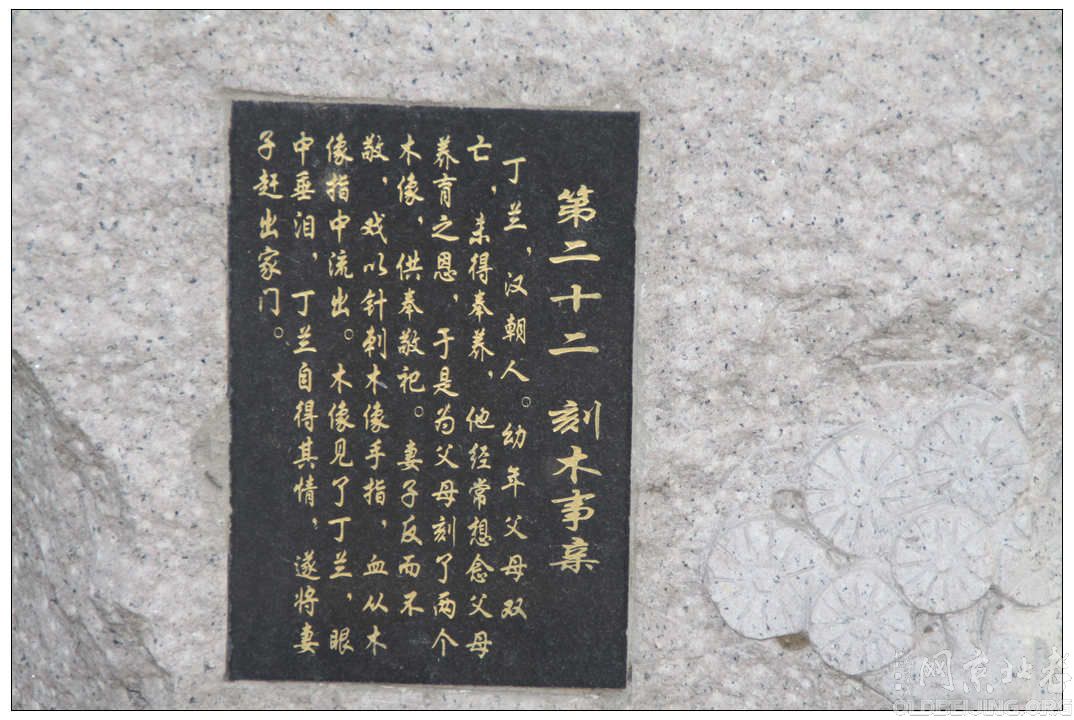 第二十二 刻木事亲
丁兰，汉朝人。幼年父母双
亡，未得奉养，他经常想念父母
养育之恩，于是为父母刻了两个
木像，供奉敬祀。妻子反而不
敬，戏以针刺木像手指，血从木
像指中流出。木像见了丁兰，眼
中垂泪，丁兰自得其情，遂将妻
子赶出家门。
老北京网
OLDBEIJING.ORG